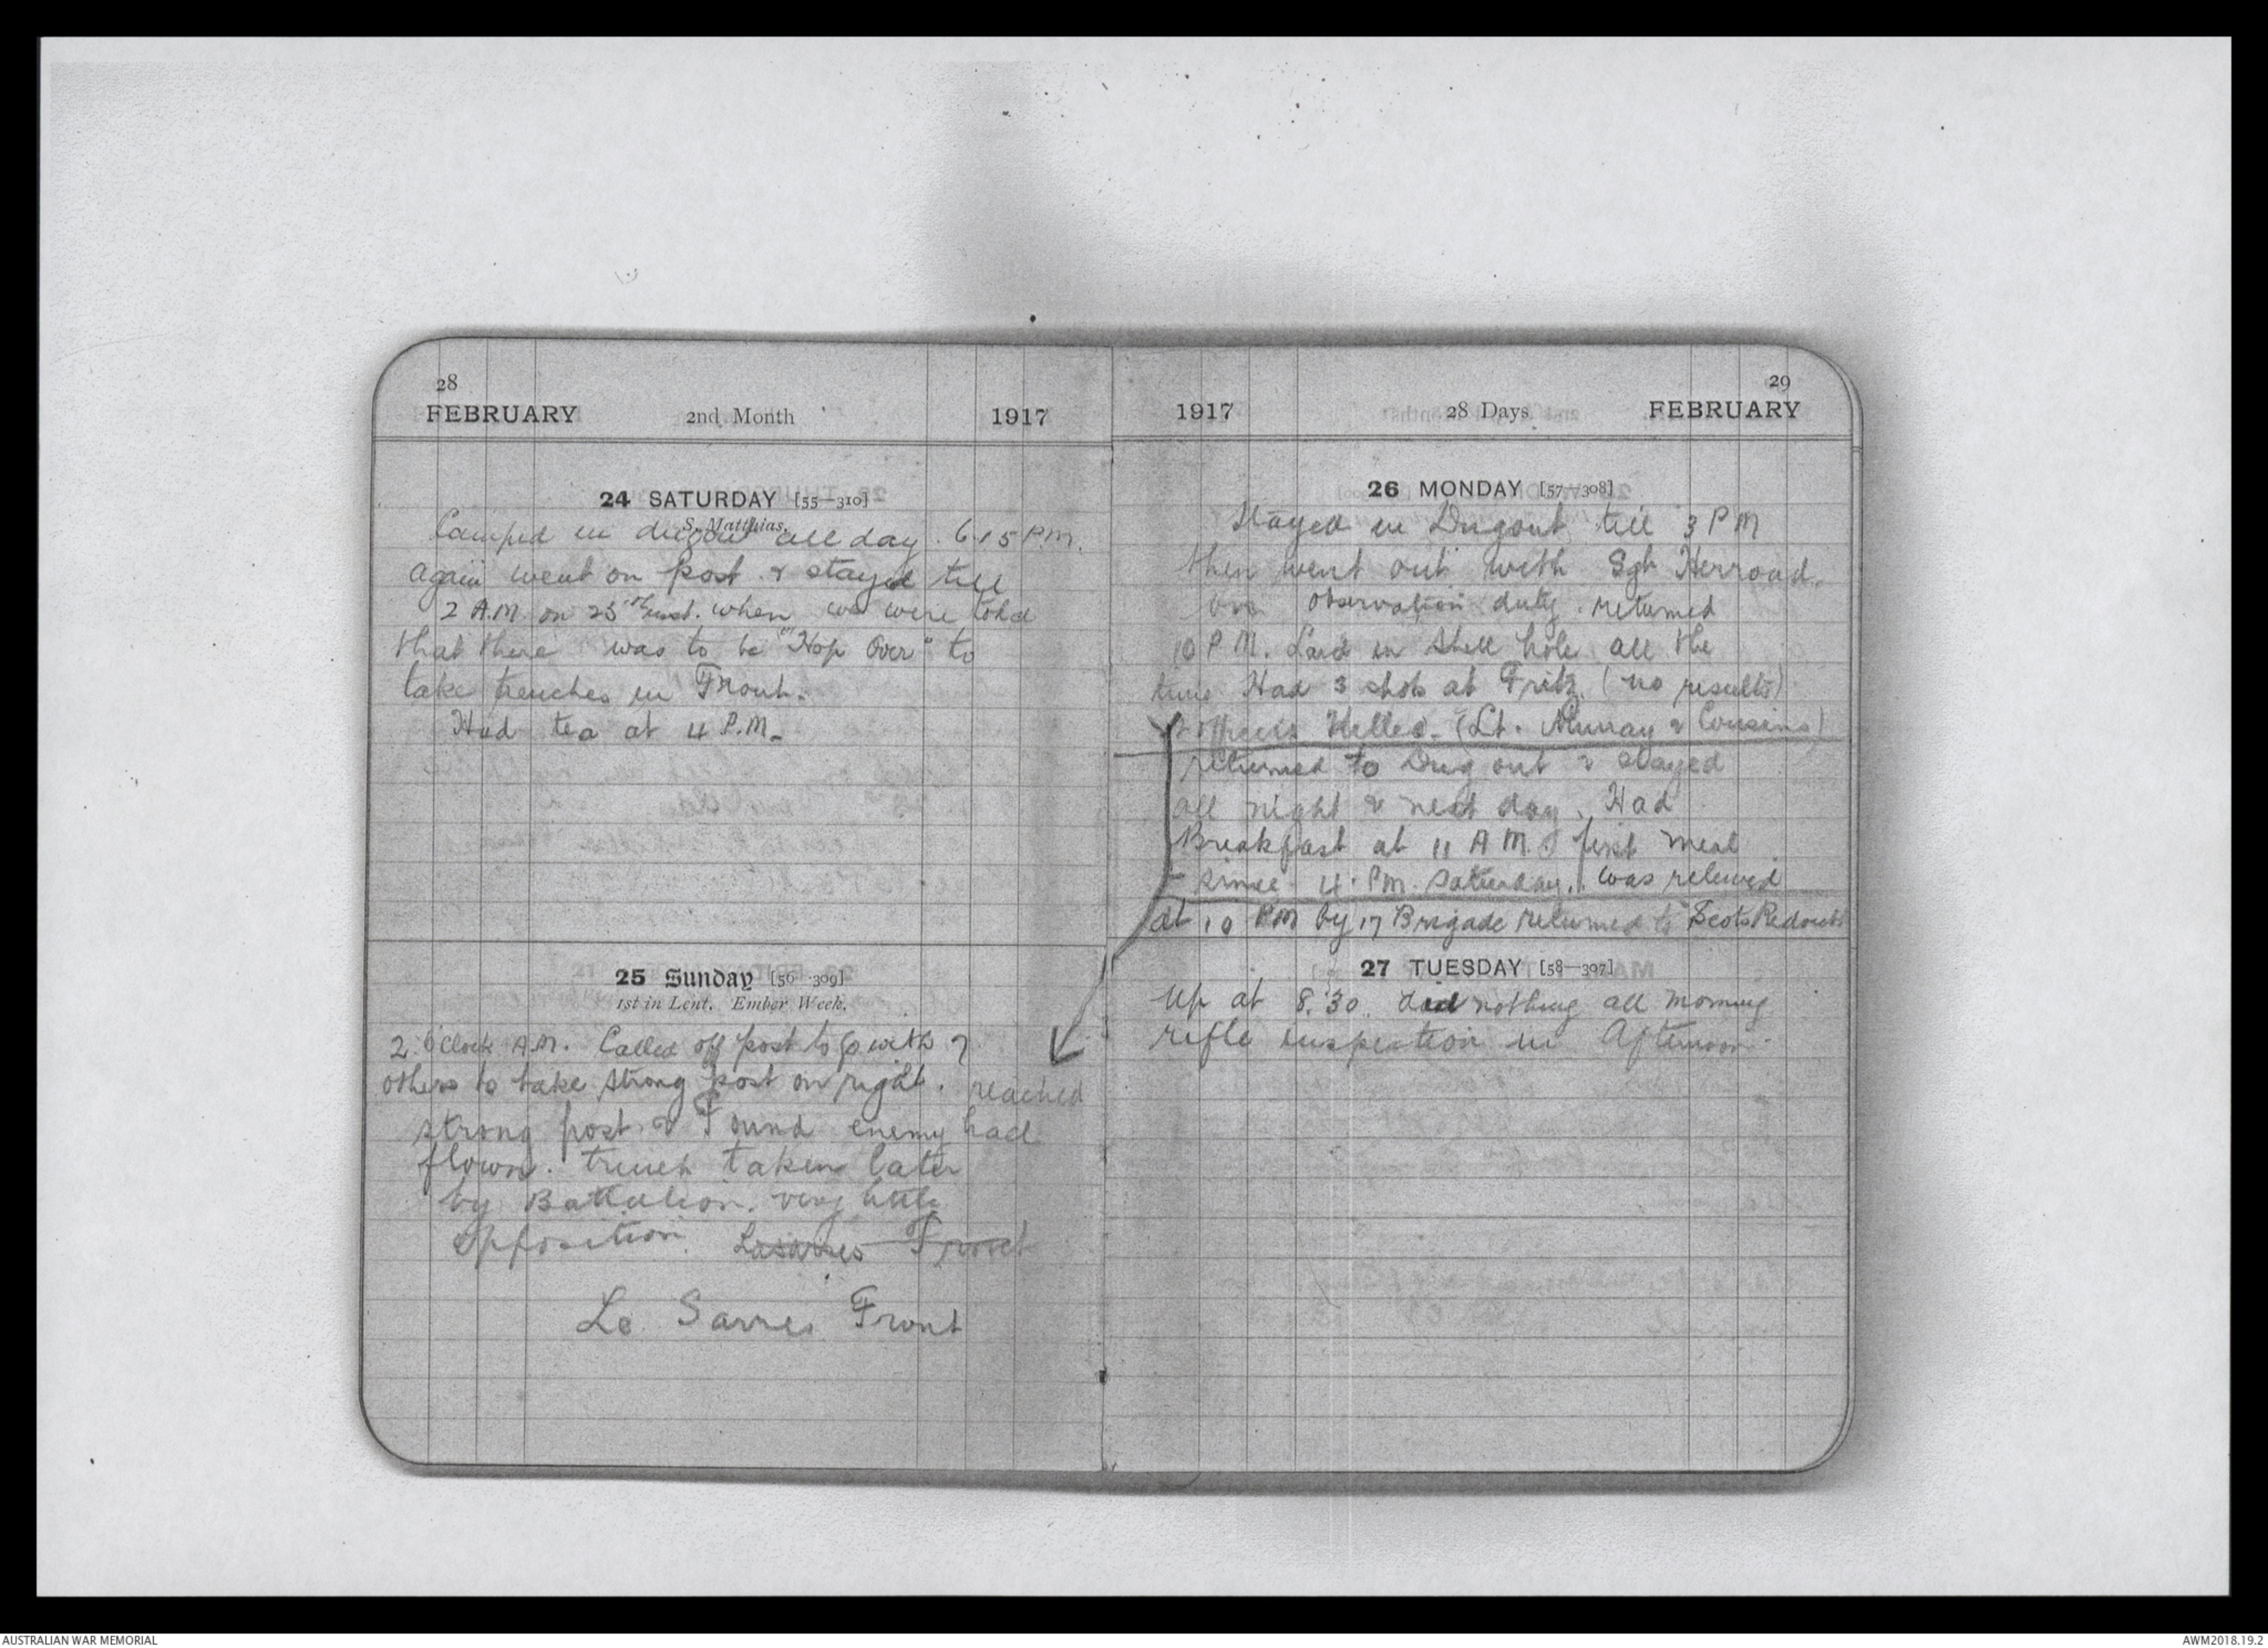 28
FEBRUARY 2nd Month 1917
24 SATURDAY [55—310]
S. Matthias.
Camped in dugout all day. 6.15 P.M.
again went on post & stayed till
2 A.M. on 25th inst. when we were told
that there was to be "Hop Over" to
take trenches in Front.
Had tea at 4 P.M.
25 Sunday [56—309]
1st in Lent. Ember Week.
2 O'Clock A.M. Called off post to go with 7
others to take strong post on right. reached
strong post & Found enemy had
flown. trench taken later
by Battalion. very little
opposition. Lasarres Front
Le Sarres Front
29
1917 28 Days FEBRUARY
26 MONDAY [57—308]
Stayed in Dugout till 3 PM
then went out with Sgt Herroad.
on observation duty. returned
10 P.M. Laid in shell hole all the
time Had 3 shots at Fritz. (no results)
2 officers Killed. (Lt. Murray & Cousins)
returned to Dug out & stayed
all night & next day. Had
Breakfast at 11 A M. first meal
since 4. PM. Saturday. was relieved
at 10 PM by 17 Brigade returned to Scots Redoubt
27 TUESDAY [58—307]
Up at 8.30. did nothing all morning
rifle inspection in Afternoon.
AUSTRALIAN WAR MEMORIAL
AWM2018.19.2